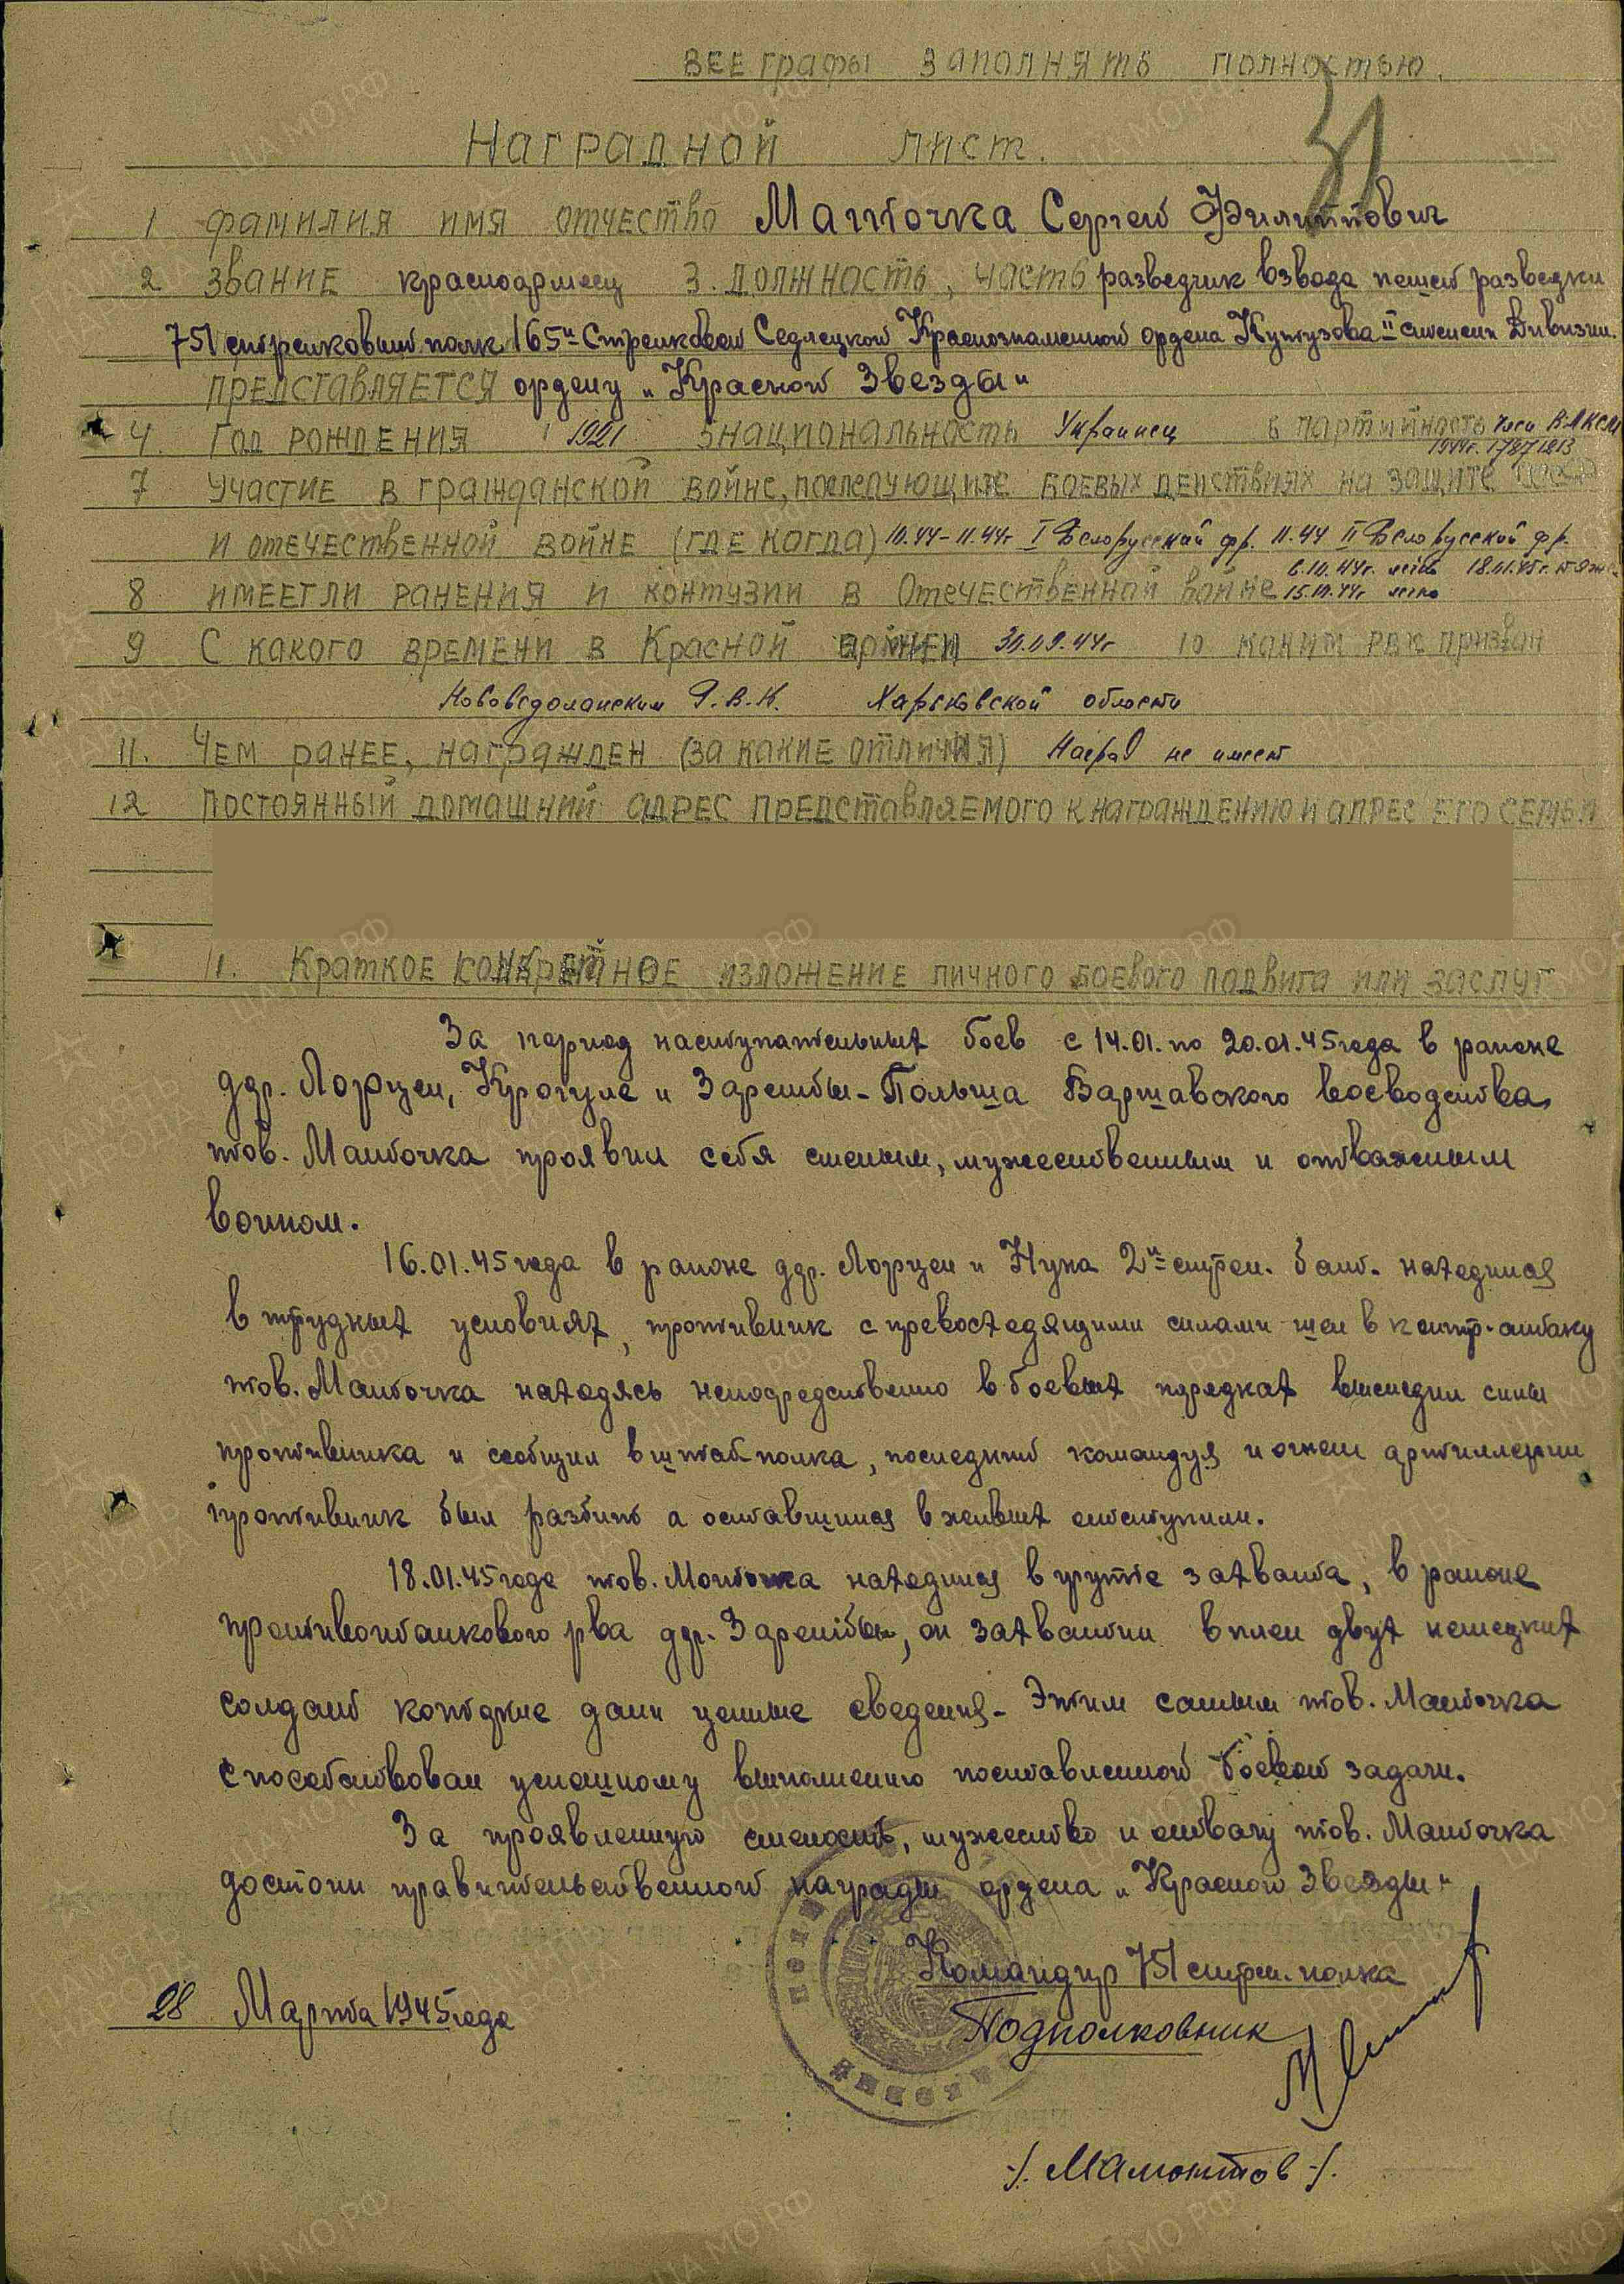 ВСЕ графы заполнять полностью.
31
Наградной лист.
1 фамилия имя отчество Маиточка Сергей Филиппович
2 звание красноармеец 3. должность, часть разведчик взвода пешей разведки
751 стрелковый полк 165й Стрелковой Седлецкой Краснознаменной ордена Кутузова II степени Дивизии.
представляется ордену „Красной Звезды"
4. Год рождения 1921 5 национальность Украинец 6 партийность член ВЛКСМ
1944г. 17871213
7 Участие в гражданской войне, последующите боевых действиях на защите СССР
и отечественной войне (где когда) 10.44-11.44г I Белорусский фр. 11.44 II Белорусский фр.
8 имеетли ранения и контузии в Отечественной войне 6.10.44г. легко 18.01.45г. тяже.
15.10.44г легко
9 С какого времени в Красной армеи 30.09.44г 10 каким РВК призван
Нововодолажским Р.В.К. Харьковской области
11. Чем ранее, награжден (за какие отличия) Наград не имеет
12 Постоянный домашний адрес представляемого к награждению и адрес его семьи
11. Краткое конкретное изложение личного боевого подвига или заслуг
За период наступательных боев с 14.01. по 20.01.45 года в районе
ддр. Лорцен, Крогуле и Зарембы - Польша Варшавского воеводства,
тов. Маиточка проявил себя смелым, мужественным и отважным
воином.
16.01.45 года в районе ддр. Лорцен и Нуна 2й стрел. бат. находился
в трудных условиях, противник с превосходящими силами шел в контр-атаку
тов. Маиточка находясь непосредственно в боевых порядках выследил силы
противника и сообщил в штаб полка, последний командуя и огнем артиллерии
противник был разбит а оставшиися в живых отступили.
18.01.45 года тов. Маиточка находился в группе захвата, в районе
противотанкового рва ддр. Зарембы, он захватил в плен двух немецких
солдат которые дали ценные сведения - Этим самым тов. Маиточка
способствовал успешному выполнению поставленной боевой задачи.
За проявленную смелость, мужество и отвагу тов. Маиточка
достоин правительственной награды ордена „Красной Звезды"
Командир 751 стрел. полка
28 Марта 1945 года
Подполковник
-/. Мамонтов -/.